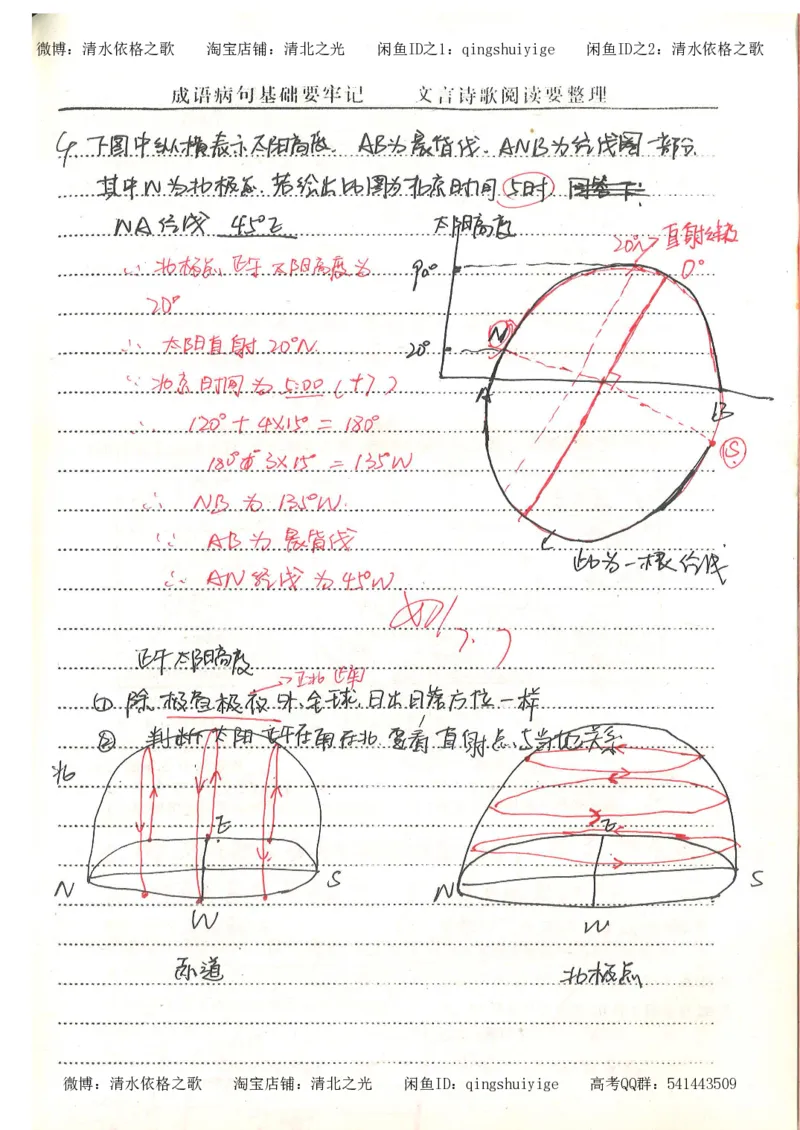 微博：清水依格之歌 淘宝店铺：清北之光 闲鱼ID之1：qingshuiyige 闲鱼ID之2：清水依格之歌
成语病句基础要牢记 文言诗歌阅读要整理
下图中纵横表示太阳高度. AB为晨昏线. ANB为经线圈一部分.
其中N为北极点. 若绘出此图为北京时间 5时
NA经线 45°E
太阳高度
20°N→直射纬线
0°
∵ 北极点正午太阳高度为
90°
20°
N
∴ 太阳直射 20°N.
20°
∵ 北京时间为 5:00 (+7)
A
B
∴ 120°+4×15°=180°
S
180° 3×15°=135°W
∴ NB 为 135°W.
∵ AB 为 晨昏线
C
此为一根经线
∴ AN 经线 为 45°W
正午太阳高度
① 除 极昼极夜 外,全球,日出日落方位一样
② 判断太阳正午在南在北,要看直射点与当地关系
北
E
E
N
S
N
S
W
W
赤道
北极点
微博：清水依格之歌 淘宝店铺：清北之光 闲鱼ID：qingshuiyige 高考QQ群：541443509